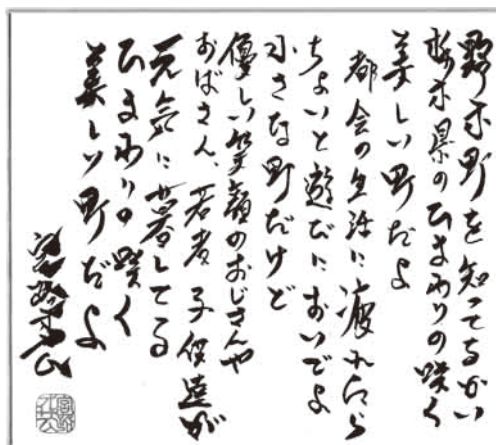 野木町を知ってるかい
栃木県のひまわりの咲く
美しい町だよ
都会の生活に疲れたら
ちょいと遊びにおいでよ
小さな町だけど
優しい笑顔のおじさんや
おばさん、若者 子供達が
元気に暮してる
ひまわりの咲く
美しい町だよ